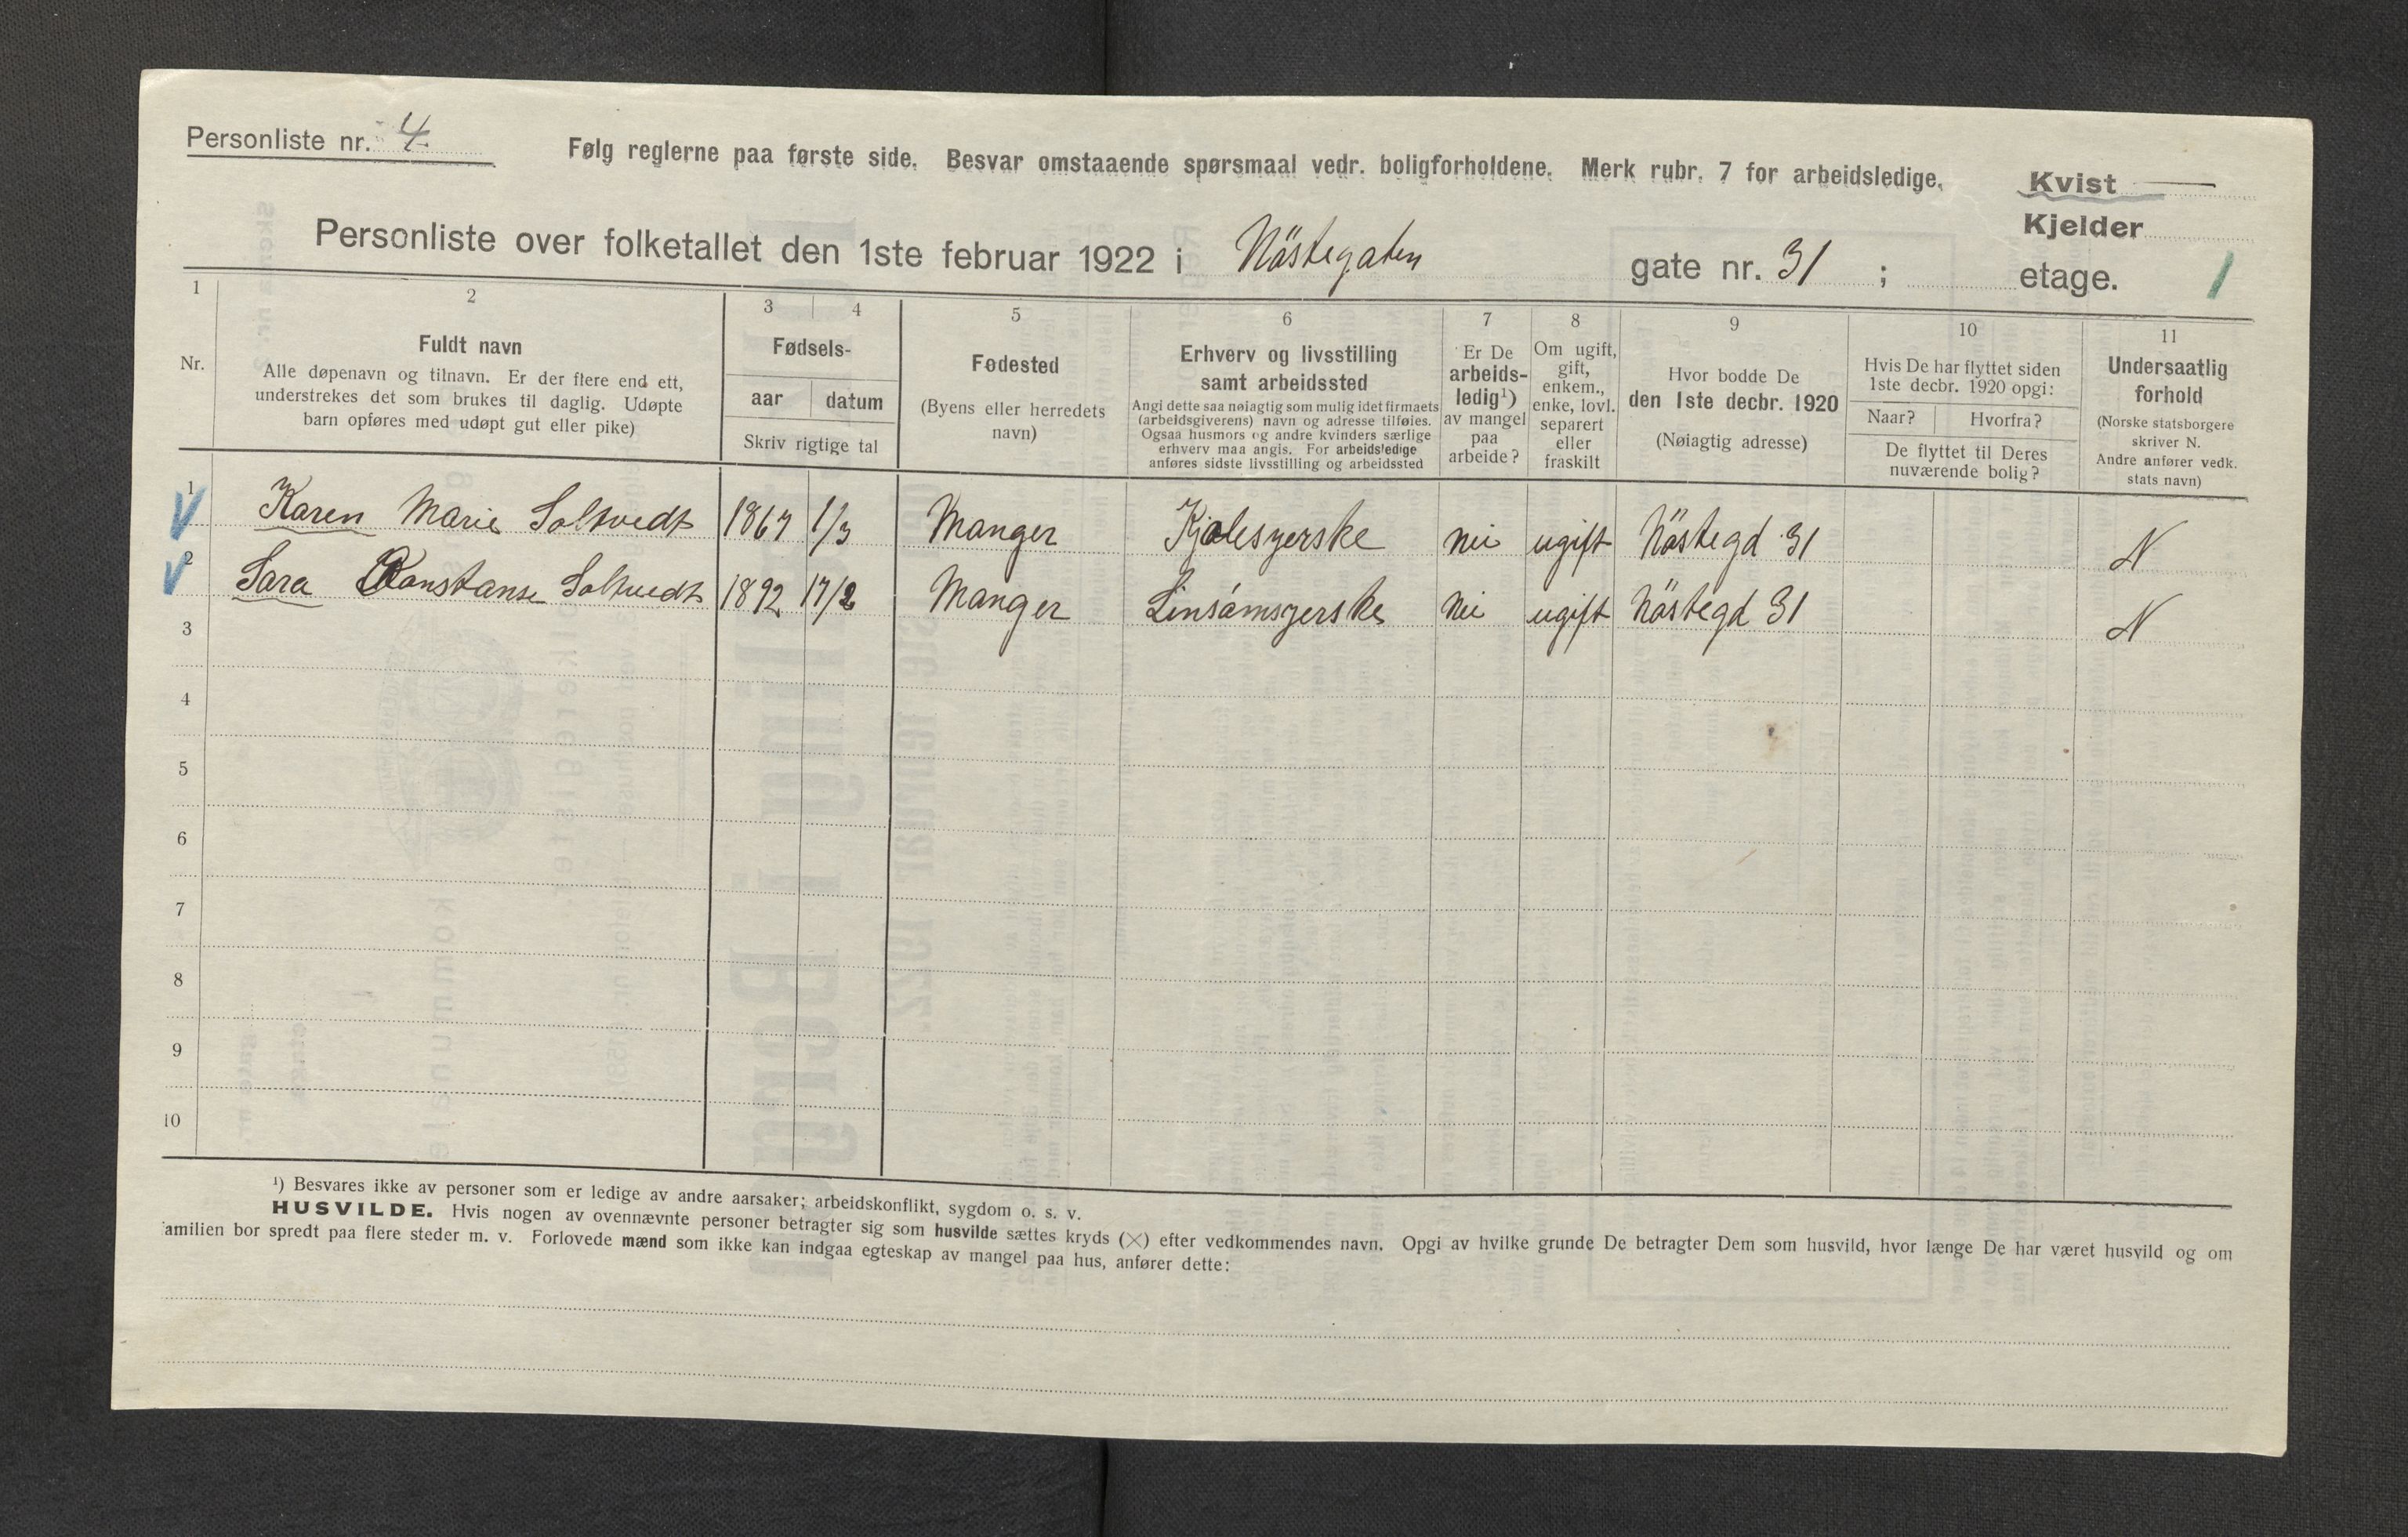 Personliste nr. 4
Følg reglerne paa første side. Besvar omstaaende spørsmaal vedr. boligforholdene. Merk rubr. 7 for arbeidsledige.
Kvist —
Kjelder
Personliste over folketallet den 1ste februar 1922 i Nöstegaten gate nr. 31 ; etage. 1
1 2 3 4 5 6 7 8 9 10 11
Nr.
Fuldt navn
Alle døpenavn og tilnavn. Er der flere end ett,
understrekes det som brukes til daglig. Udøpte
barn opføres med udøpt gut eller pike)
Fødsels-
aar datum
Skriv rigtige tal
Fødested
(Byens eller herredets
navn)
Erhverv og livsstilling
samt arbeidssted
Angi dette saa nøiagtig som mulig idet firmaets
(arbeidsgiverens) navn og adresse tilføies.
Ogsaa husmors og andre kvinders særlige
erhverv maa angis. For arbeidsledige
anføres sidste livsstilling og arbeidssted
Er De
arbeids-
ledig¹)
av mangel
paa
arbeide?
Om ugift,
gift,
enkem.,
enke, lovl.
separert
eller
fraskilt
Hvor bodde De
den 1ste decbr. 1920
(Nøiagtig adresse)
Hvis De har flyttet siden
1ste decbr. 1920 opgi:
Naar? Hvorfra?
De flyttet til Deres
nuværende bolig?
Undersaatlig
forhold
(Norske statsborgere
skriver N.
Andre anfører vedk.
stats navn)
1 Karen Marie Soltvedt 1867 1/3 Manger Kjolesyerske nei ugift Nöstegd 31 N
2 Sara Konstanse Soltvedt 1892 17/2 Manger Linsömsyerske nei ugift Nöstegd 31 N
3
4
5
6
7
8
9
10
¹) Besvares ikke av personer som er ledige av andre aarsaker; arbeidskonflikt, sygdom o. s. v.
HUSVILDE. Hvis nogen av ovennævnte personer betragter sig som husvilde sættes kryds (×) efter vedkommendes navn. Opgi av hvilke grunde De betragter Dem som husvild, hvor længe De har været husvild og om
amilien bor spredt paa flere steder m. v. Forlovede mænd som ikke kan indgaa egteskap av mangel paa hus, anfører dette: